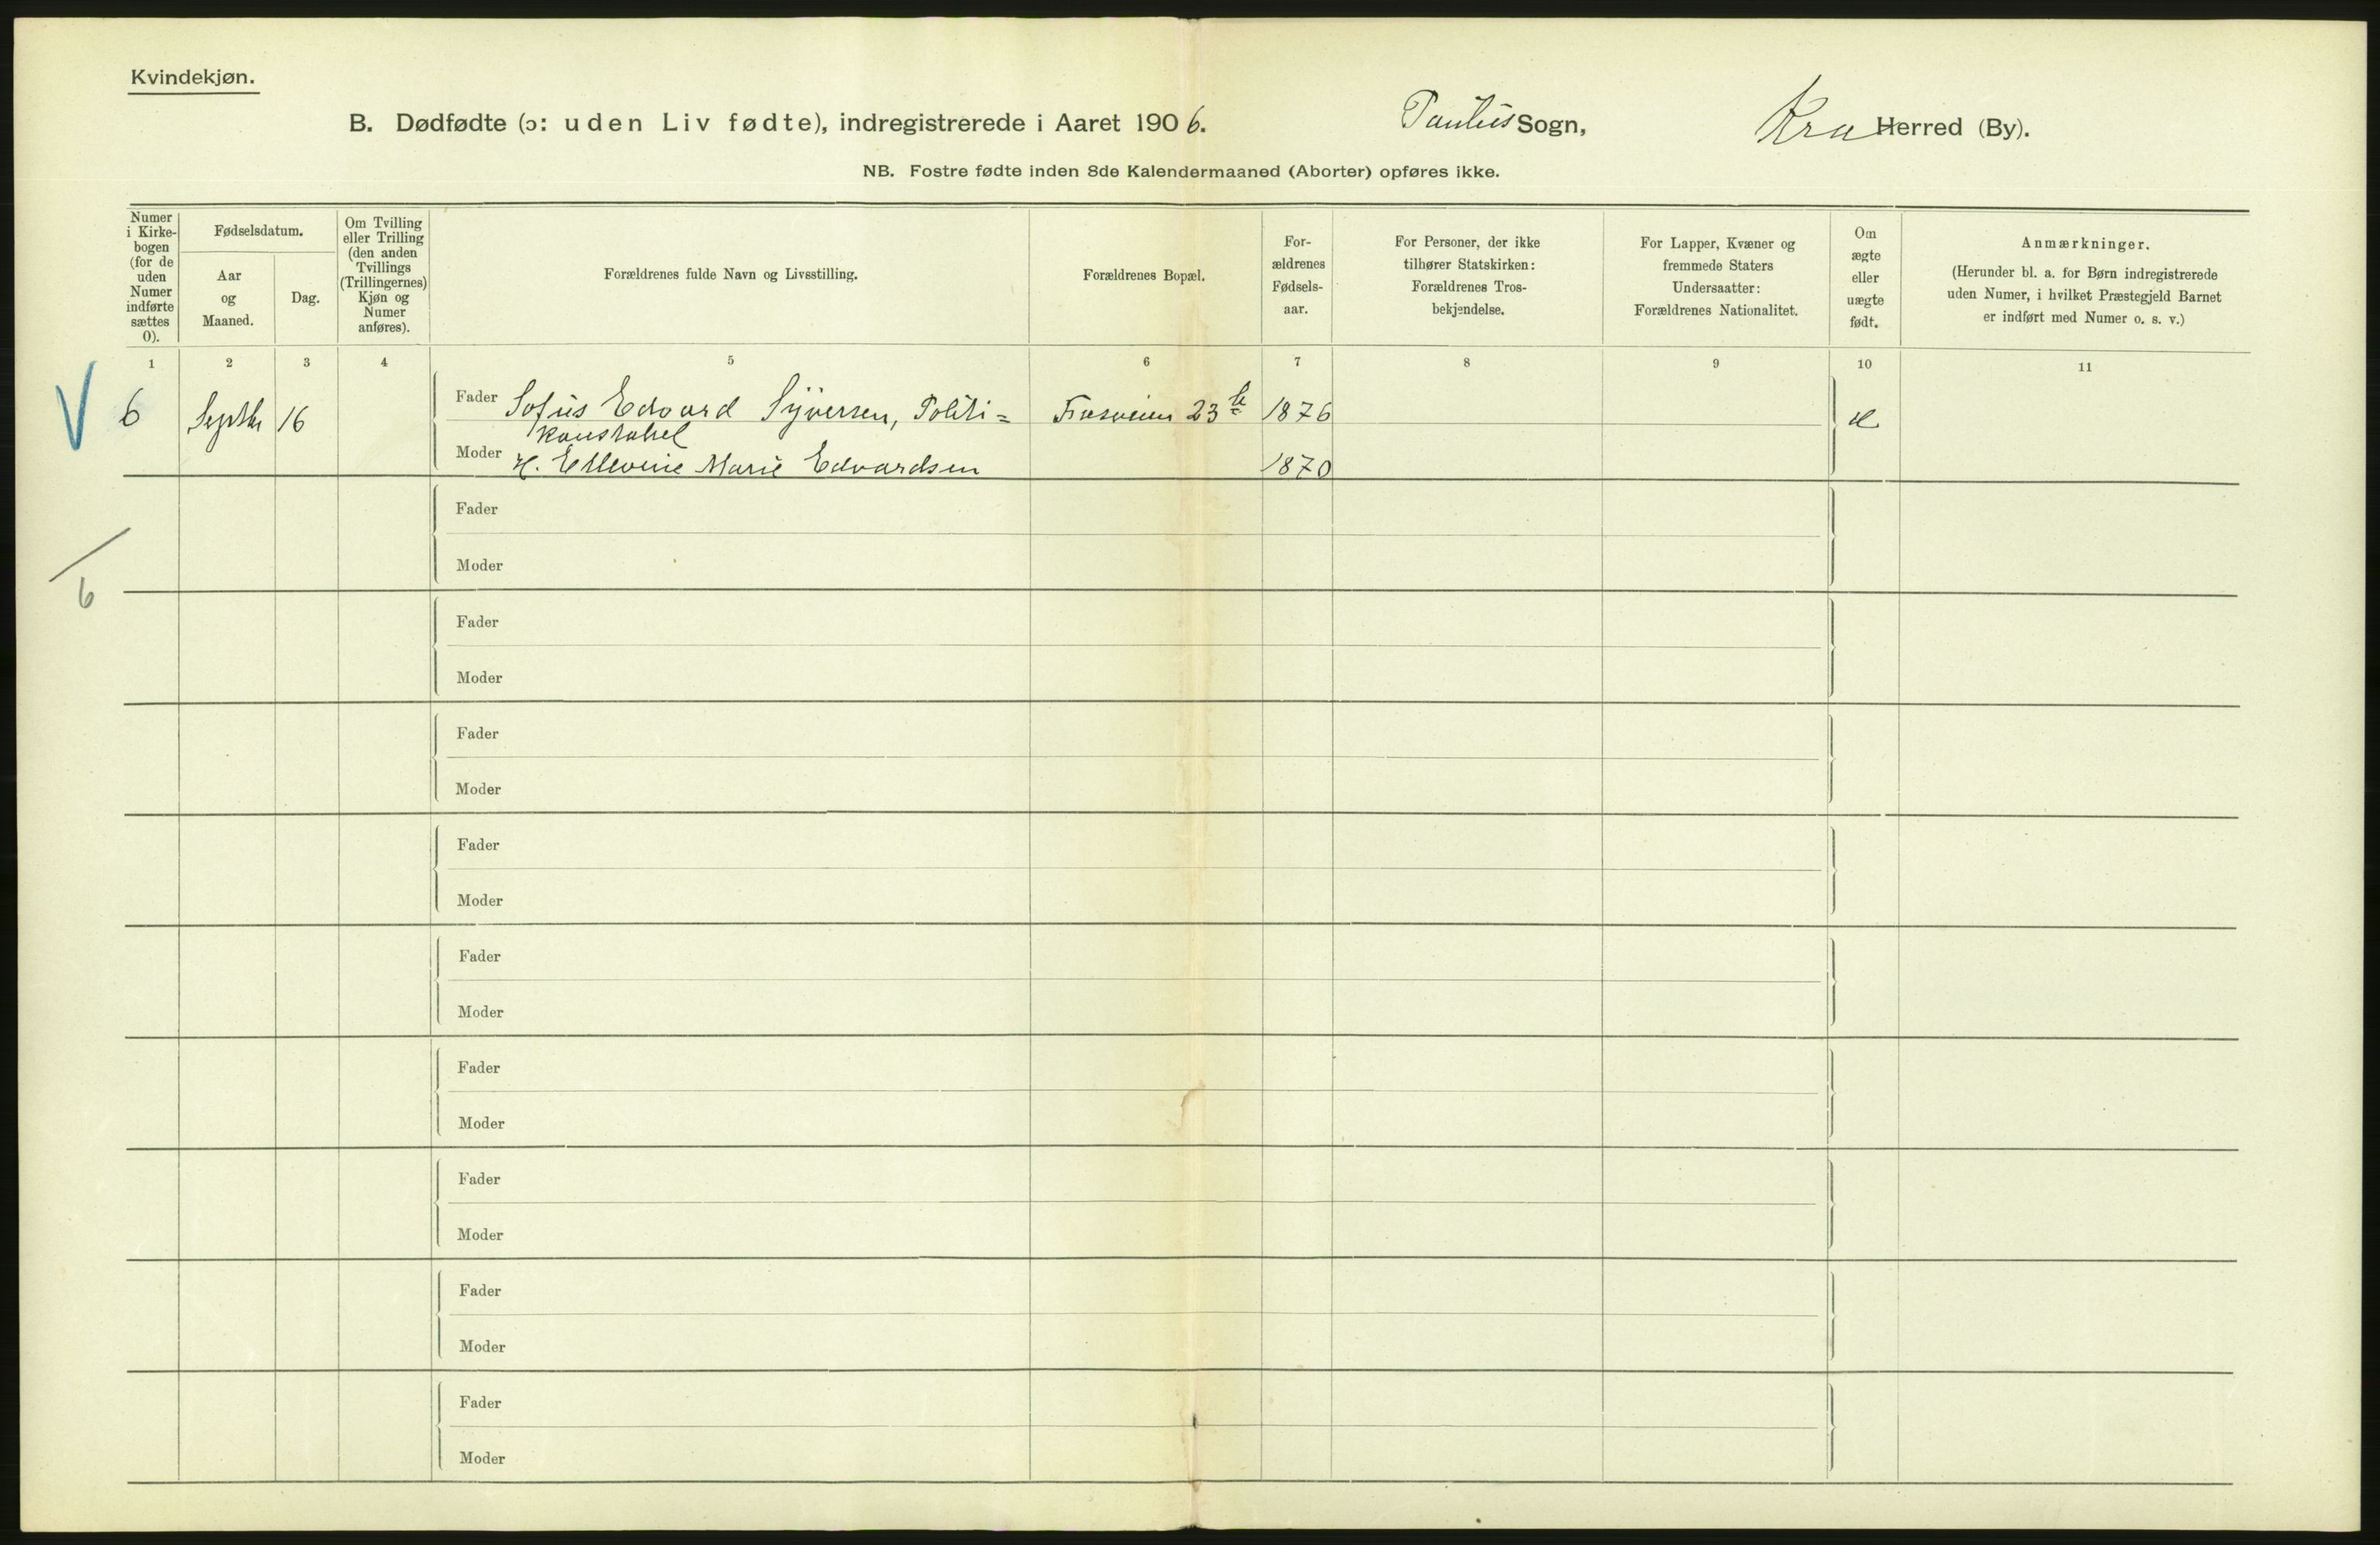 Kvindekjøn.
B. Dødfødte (ɔ: uden Liv fødte), indregistrerede i Aaret 1906. Paulus Sogn, Kra Herred (By).
NB. Fostre fødte inden 8de Kalendermaaned (Aborter) opføres ikke.
Numer
i Kirke-
bogen
(for de
uden
Numer
indførte
sættes
0).
Fødselsdatum.
Aar
og
Maaned.
Dag.
Om Tvilling
eller Trilling
(den anden
Tvillings
(Trillingernes)
Kjøn og
Numer
anføres).
Forældrenes fulde Navn og Livsstilling.
Forældrenes Bopæl.
For-
ældrenes
Fødsels-
aar.
For Personer, der ikke
tilhører Statskirken:
Forældrenes Tros-
bekjendelse.
For Lapper, Kvæner og
fremmede Staters
Undersaatter:
Forældrenes Nationalitet.
Om
ægte
eller
uægte
født.
Anmærkninger.
(Herunder bl. a. for Børn indregistrerede
uden Numer, i hvilket Præstegjeld Barnet
er indført med Numer o. s. v.)
1 2 3 4 5 6 7 8 9 10 11
V 6 Septbr 16 Fader Sofus Edvard Syversen, Politi= 23 b 1876 Æ
konstabel
Moder H. Marie Edvardsen 1870
Fader
Moder
6
Fader
Moder
Fader
Moder
Fader
Moder
Fader
Moder
Fader
Moder
Fader
Moder
Fader
Moder
Fader
Moder